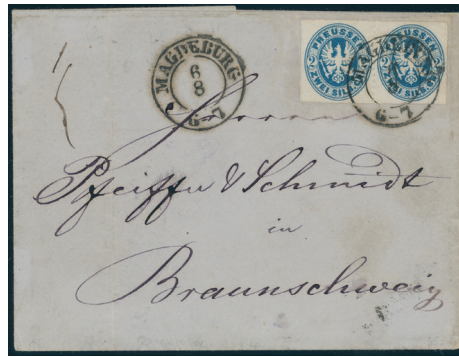 MAGDEBURG
6
8
6-7
PREUSSEN
2 2
ZWEI SILB.GR.
PREUSSEN
2
ZWEI SILB.GR.
MAGDEBURG
6-7
Herren
Pfeiffer & Schmidt
in
Braunschweig